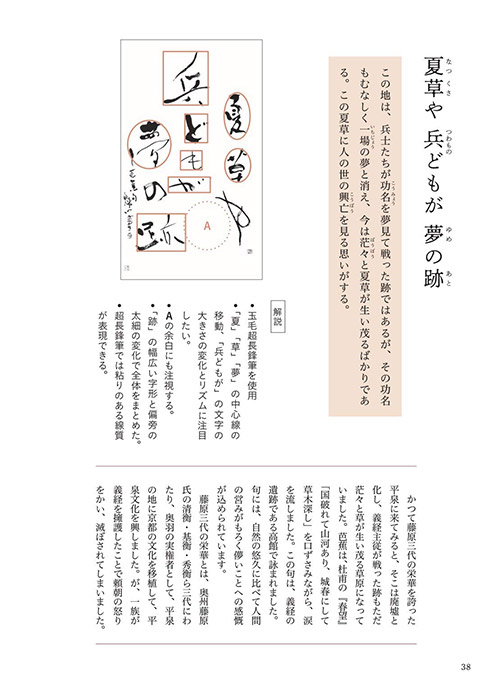 夏草や 兵どもが 夢の跡
なつくさ
つわもの
ゆめ
あと
この地は、兵士たちが功名を夢見て戦った跡ではあるが、その功名
もむなしく一場の夢と消え、今は茫々と夏草が生い茂るばかりであ
る。この夏草に人の世の興亡を見る思いがする。
こうみょう
いちじょう
ぼうぼう
こうぼう
夏草や
兵どもが
夢の跡
A
解説
•玉毛超長鋒筆を使用
•「夏」「草」「夢」の中心線の
移動、「兵どもが」の文字の
大きさの変化とリズムに注目
したい。
•Aの余白にも注視する。
•「跡」の幅広い字形と偏旁の
太細の変化で全体をまとめた。
•超長鋒筆では粘りのある線質
が表現できる。
かつて藤原三代の栄華を誇った
平泉に来てみると、そこは廃墟と
化し、義経主従が戦った跡もただ
茫々と草が生い茂る草原になって
いました。芭蕉は、杜甫の『春望』
「国破れて山河あり、城春にして
草木深し」を口ずさみながら、涙
を流しました。この句は、義経の
遺跡である高館で詠まれました。
句には、自然の悠久に比べて人間
の営みがもろく儚いことへの感慨
が込められています。
藤原三代の栄華とは、奥州藤原
氏の清衡・基衡・秀衡ら三代にわ
たり、奥羽の実権者として、平泉
の地に京都の文化を移植して、平
泉文化を興しました。が、一族が
義経を擁護したことで頼朝の怒り
をかい、滅ぼされてしまいました。
38